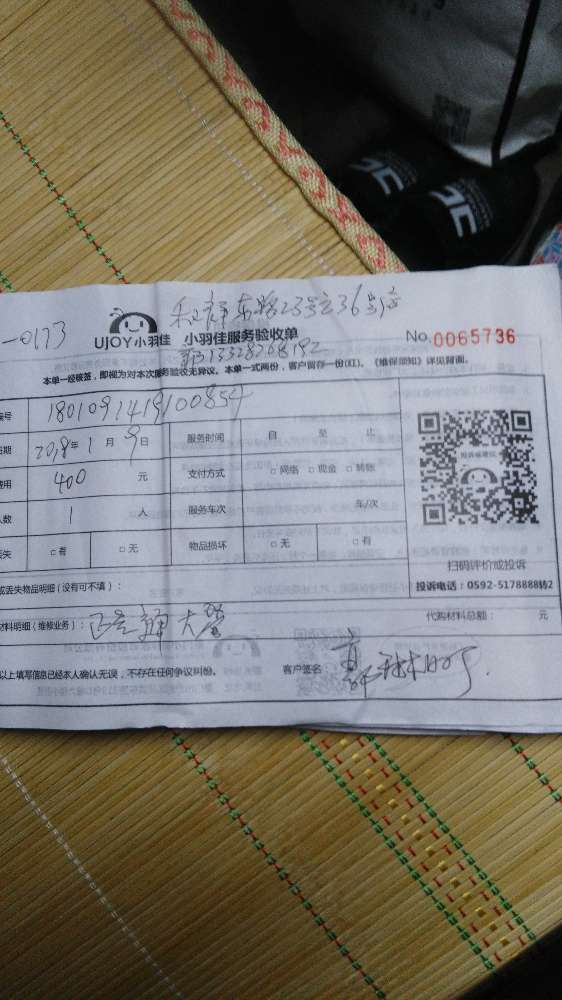 东路23号之36
-0173
UJOY小羽佳 小羽佳服务验收单 No.0065736
本单一经核签，即视为对本次服务验收无异议。本单一式两份，客户留存一份(红)。《维保须知》详见背面。
编号 1801091419100854
日期 2018年1月9日 服务时间 自 至 止
费用 400 元 支付方式 □网络 □现金 □转账
人数 1 人 服务车次 车/次
丢失 □有 □无 物品损坏 □无 □有
扫码评价或投诉
投诉电话：0592-5178888转2
或丢失物品明细（没有可不填）：
材料明细（维修业务）： 代购材料总额： 元
以上填写信息已经本人确认无误，不存在任何争议纠纷。 客户签名：